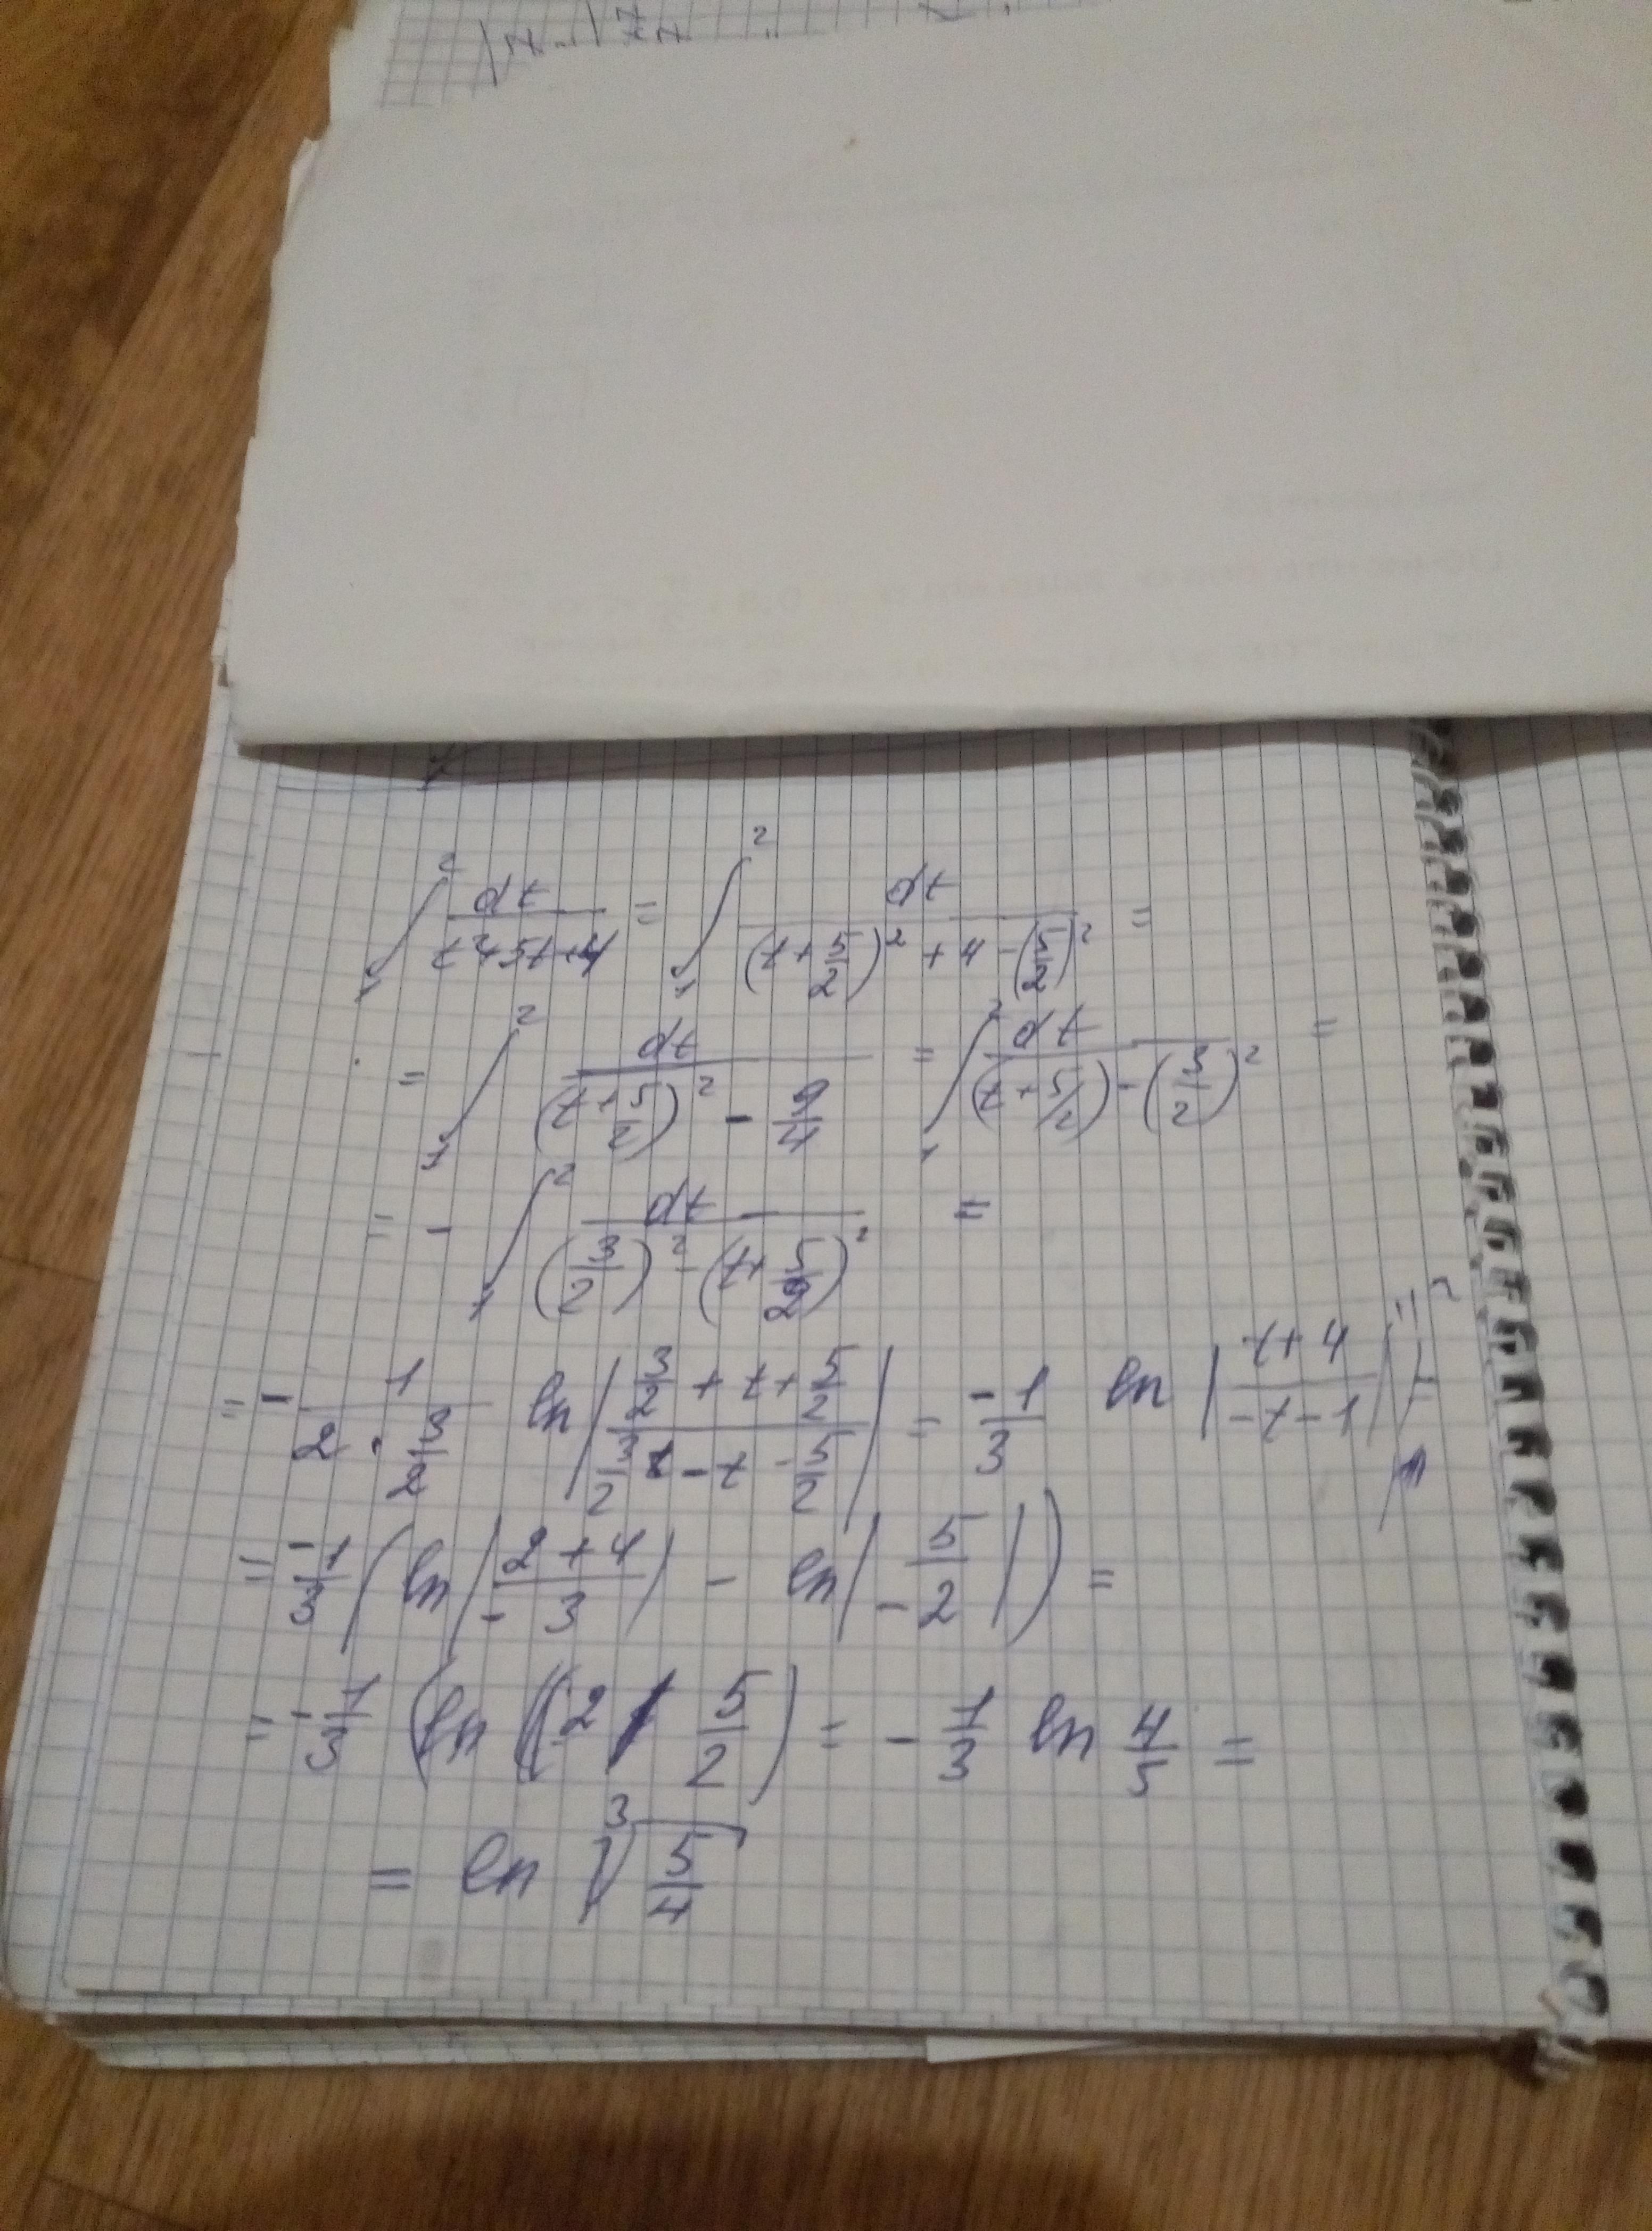 ∫₁² dt/(t²+5t+4) = ∫₁² dt/((t+5/2)²+4-(5/2)²) =
= ∫₁² dt/((t+5/2)²-9/4) = ∫₁² dt/((t+5/2)-(3/2)²) =
= - ∫₁² dt/((3/2)²-(t+5/2)²) =
= - 1/(2·3/2) ln|(3/2+t+5/2)/(3/2-t-5/2)| = -1/3 ln|(t+4)/(-t-1)| |₁² =
= -1/3 (ln|(2+4)/(-3)| - ln|5/(-2)|) =
= -1/3 (ln (2 / 5/2) = -1/3 ln 4/5 =
= ln ∛(5/4)